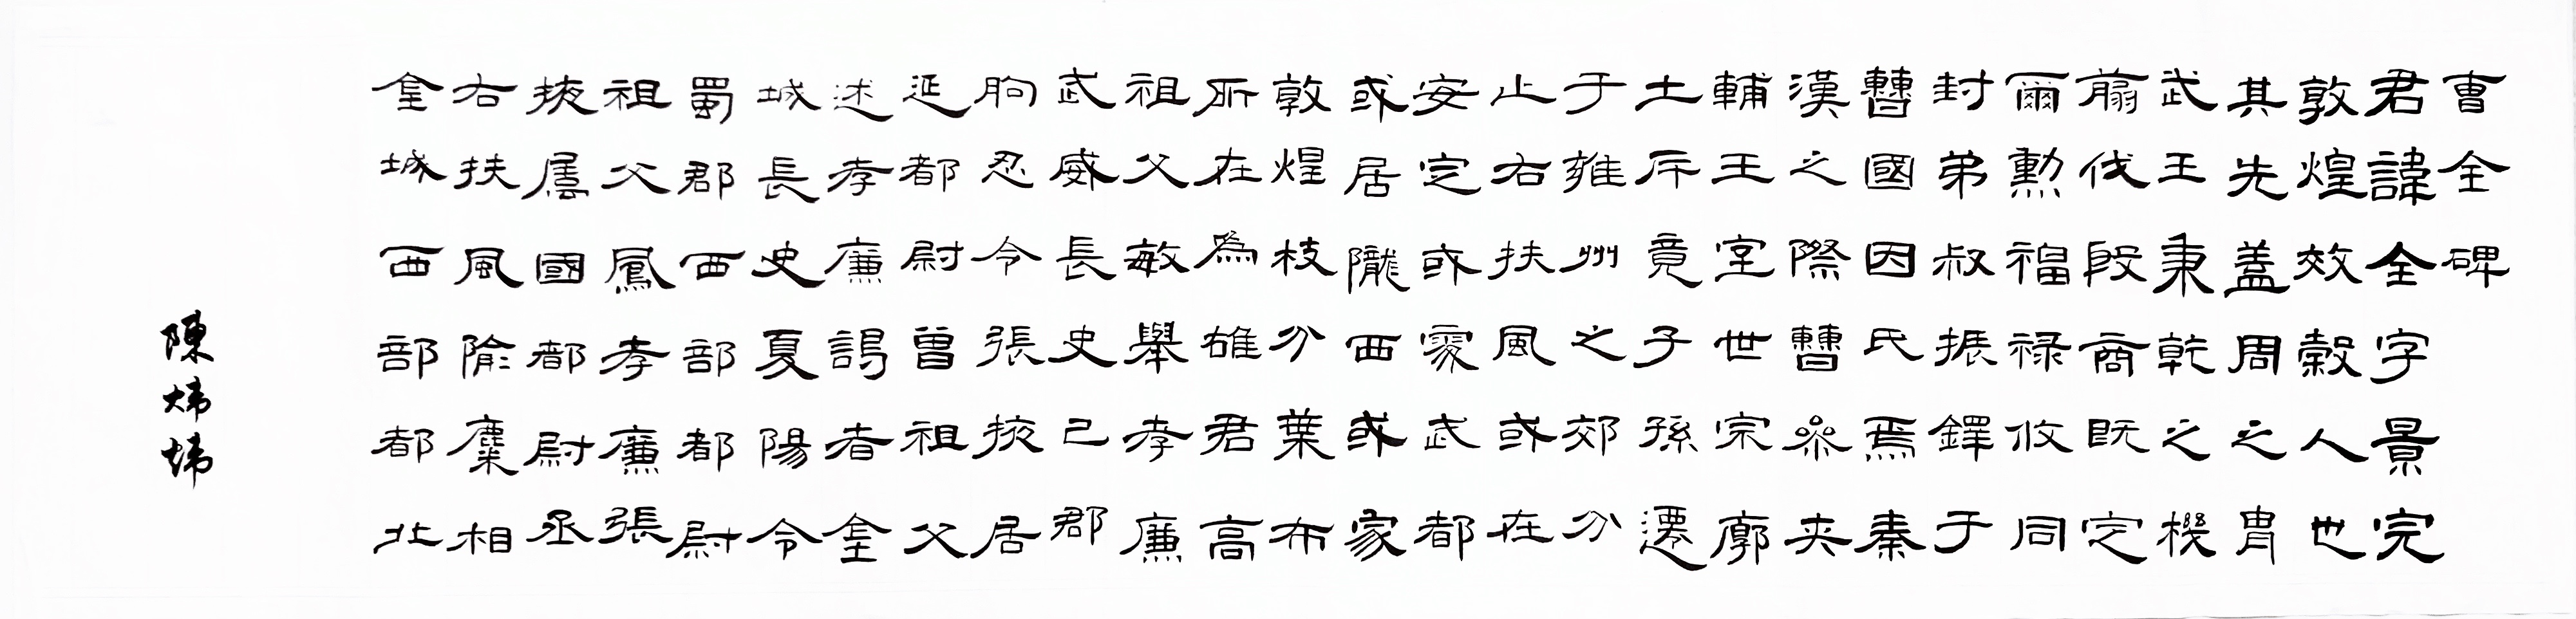 曹全碑
君諱全字景完
敦煌效穀人也
其先蓋周之胄
武王秉乾之機
翦伐殷商既定
爾勲福祿攸同
封弟叔振鐸于
曹國因氏焉秦
漢之際曹參夾
輔王室世宗廓
土斥竟子孫遷
于雍州之郊分
止右扶風或在
安定或處武都
或居隴西或家
敦煌枝分葉布
所在為雄君高
祖父敏舉孝廉
武威長史巳郡
朐忍令張掖居
延都尉曾祖父
述孝廉謁者金
城長史夏陽令
蜀郡西部都尉
祖父鳳孝廉張
掖屬國都尉丞
右扶風隃麋相
金城西部都北
陳煒煒